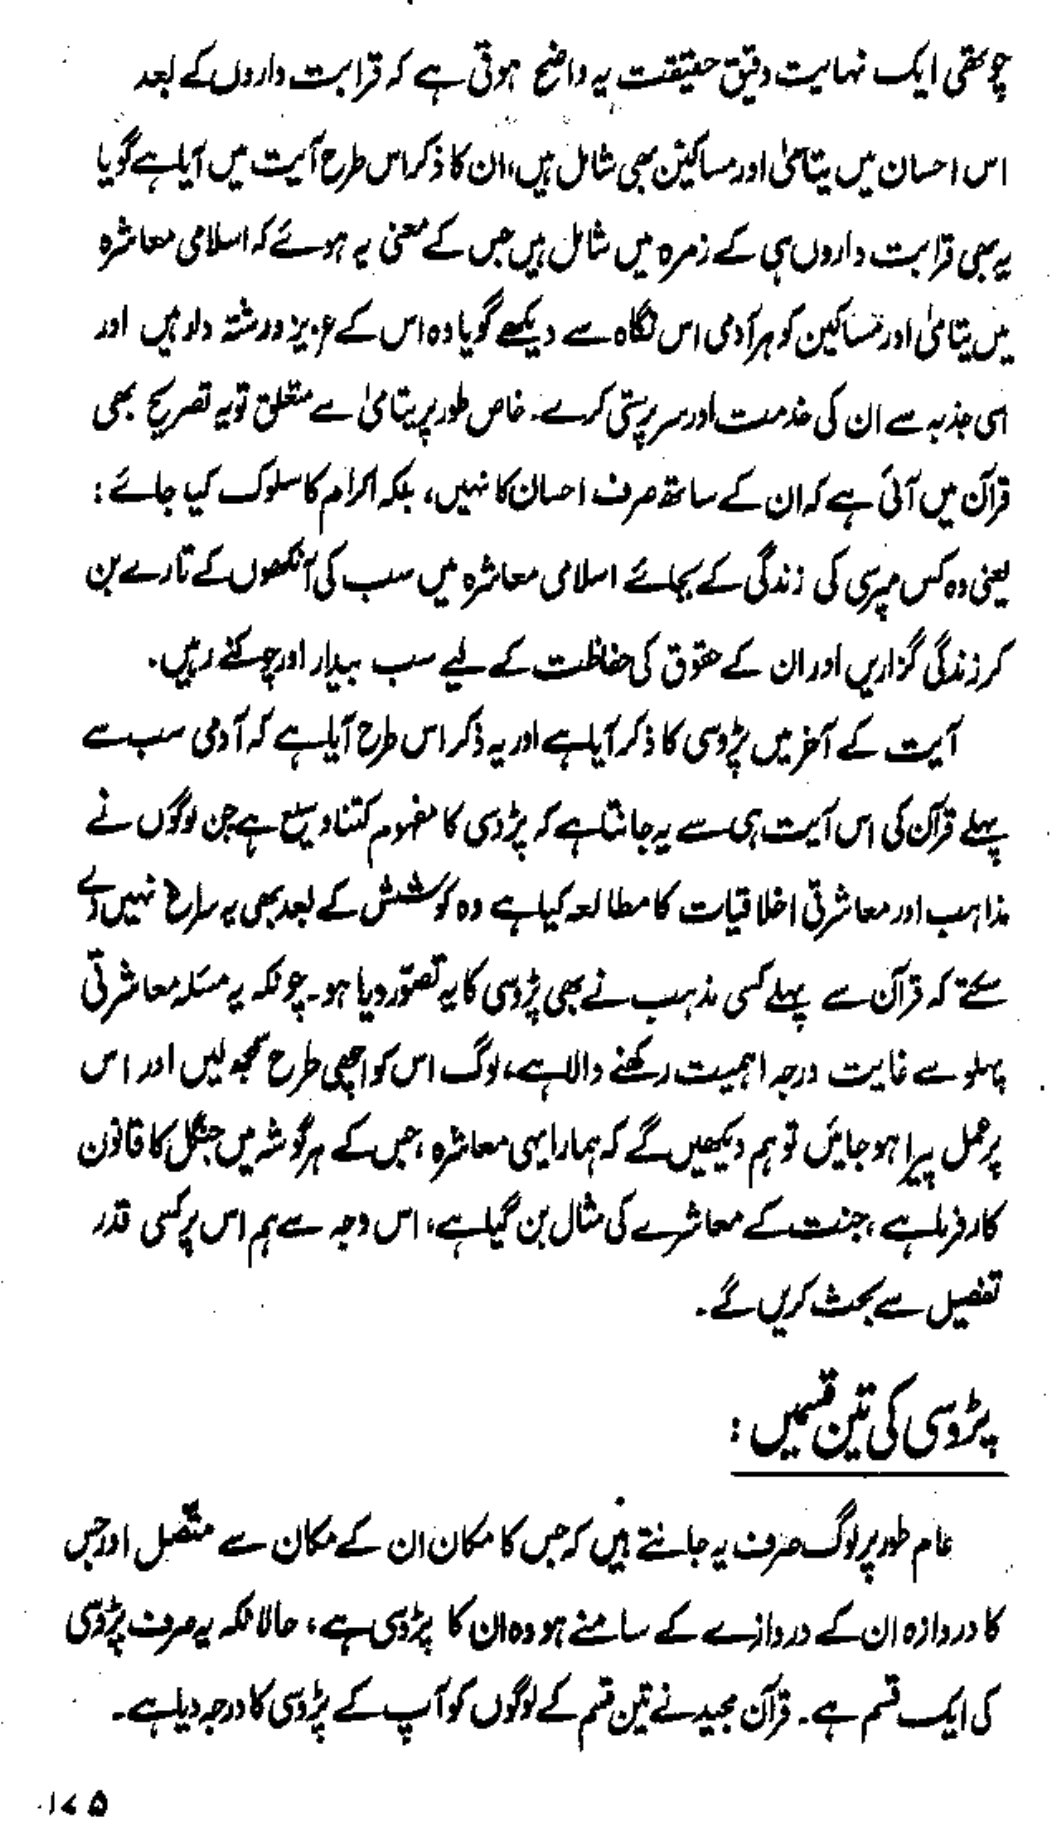 چوتھی ایک نہایت دقیق حقیقت یہ واضح ہوتی ہے کہ قرابت داروں کے بعد
اس احسان میں یتامیٰ اور مساکین بھی شامل ہیں، ان کا ذکر اس طرح آیت میں آیا ہے گویا
یہ بھی قرابت داروں ہی کے زمرہ میں شامل ہیں جس کے معنی یہ ہوئے کہ اسلامی معاشرہ
میں یتامیٰ اور مساکین کو ہر آدمی اس نگاہ سے دیکھے گویا وہ اس کے عزیز و رشتہ دار ہیں اور
اسی جذبہ سے ان کی خدمت اور سرپرستی کرے۔ خاص طور پر یتامیٰ سے متعلق تو یہ تصریح بھی
قرآن میں آئی ہے کہ ان کے ساتھ صرف احسان کا نہیں، بلکہ اکرام کا سلوک کیا جائے :
یعنی وہ کس مپرسی کی زندگی کے بجائے اسلامی معاشرہ میں سب کی آنکھوں کے تارے بن
کر زندگی گزاریں اور ان کے حقوق کی حفاظت کے لیے سب بیدار اور چوکنے رہیں۔
آیت کے آخر میں پڑوسی کا ذکر آیا ہے اور یہ ذکر اس طرح آیا ہے کہ آدمی سب سے
پہلے قرآن کی اس آیت ہی سے یہ جانتا ہے کہ پڑوسی کا مفہوم کتنا وسیع ہے جن لوگوں نے
مذاہب اور معاشرتی اخلاقیات کا مطالعہ کیا ہے وہ کوشش کے بعد بھی یہ سراغ نہیں دے
سکتے کہ قرآن سے پہلے کسی مذہب نے بھی پڑوسی کا یہ تصوّر دیا ہو۔ چونکہ یہ مسئلہ معاشرتی
پہلو سے غایت درجہ اہمیت رکھنے والا ہے، لوگ اس کو اچھی طرح سمجھ لیں اور اس
پر عمل پیرا ہو جائیں تو ہم دیکھیں گے کہ ہمارا یہی معاشرہ، جس کے ہر گوشہ میں جنگل کا قانون
کارفرما ہے، جنت کے معاشرے کی مثال بن گیا ہے، اس وجہ سے ہم اس پر کسی قدر
تفصیل سے بحث کریں گے۔
پڑوسی کی تین قسمیں :
عام طور پر لوگ صرف یہ جانتے ہیں کہ جس کا مکان ان کے مکان سے متّصل اور جس
کا دروازہ ان کے دروازے کے سامنے ہو وہ ان کا پڑوسی ہے، حالانکہ یہ صرف پڑوسی
کی ایک قسم ہے۔ قرآن مجید نے تین قسم کے لوگوں کو آپ کے پڑوسی کا درجہ دیا ہے۔
۱۷۵